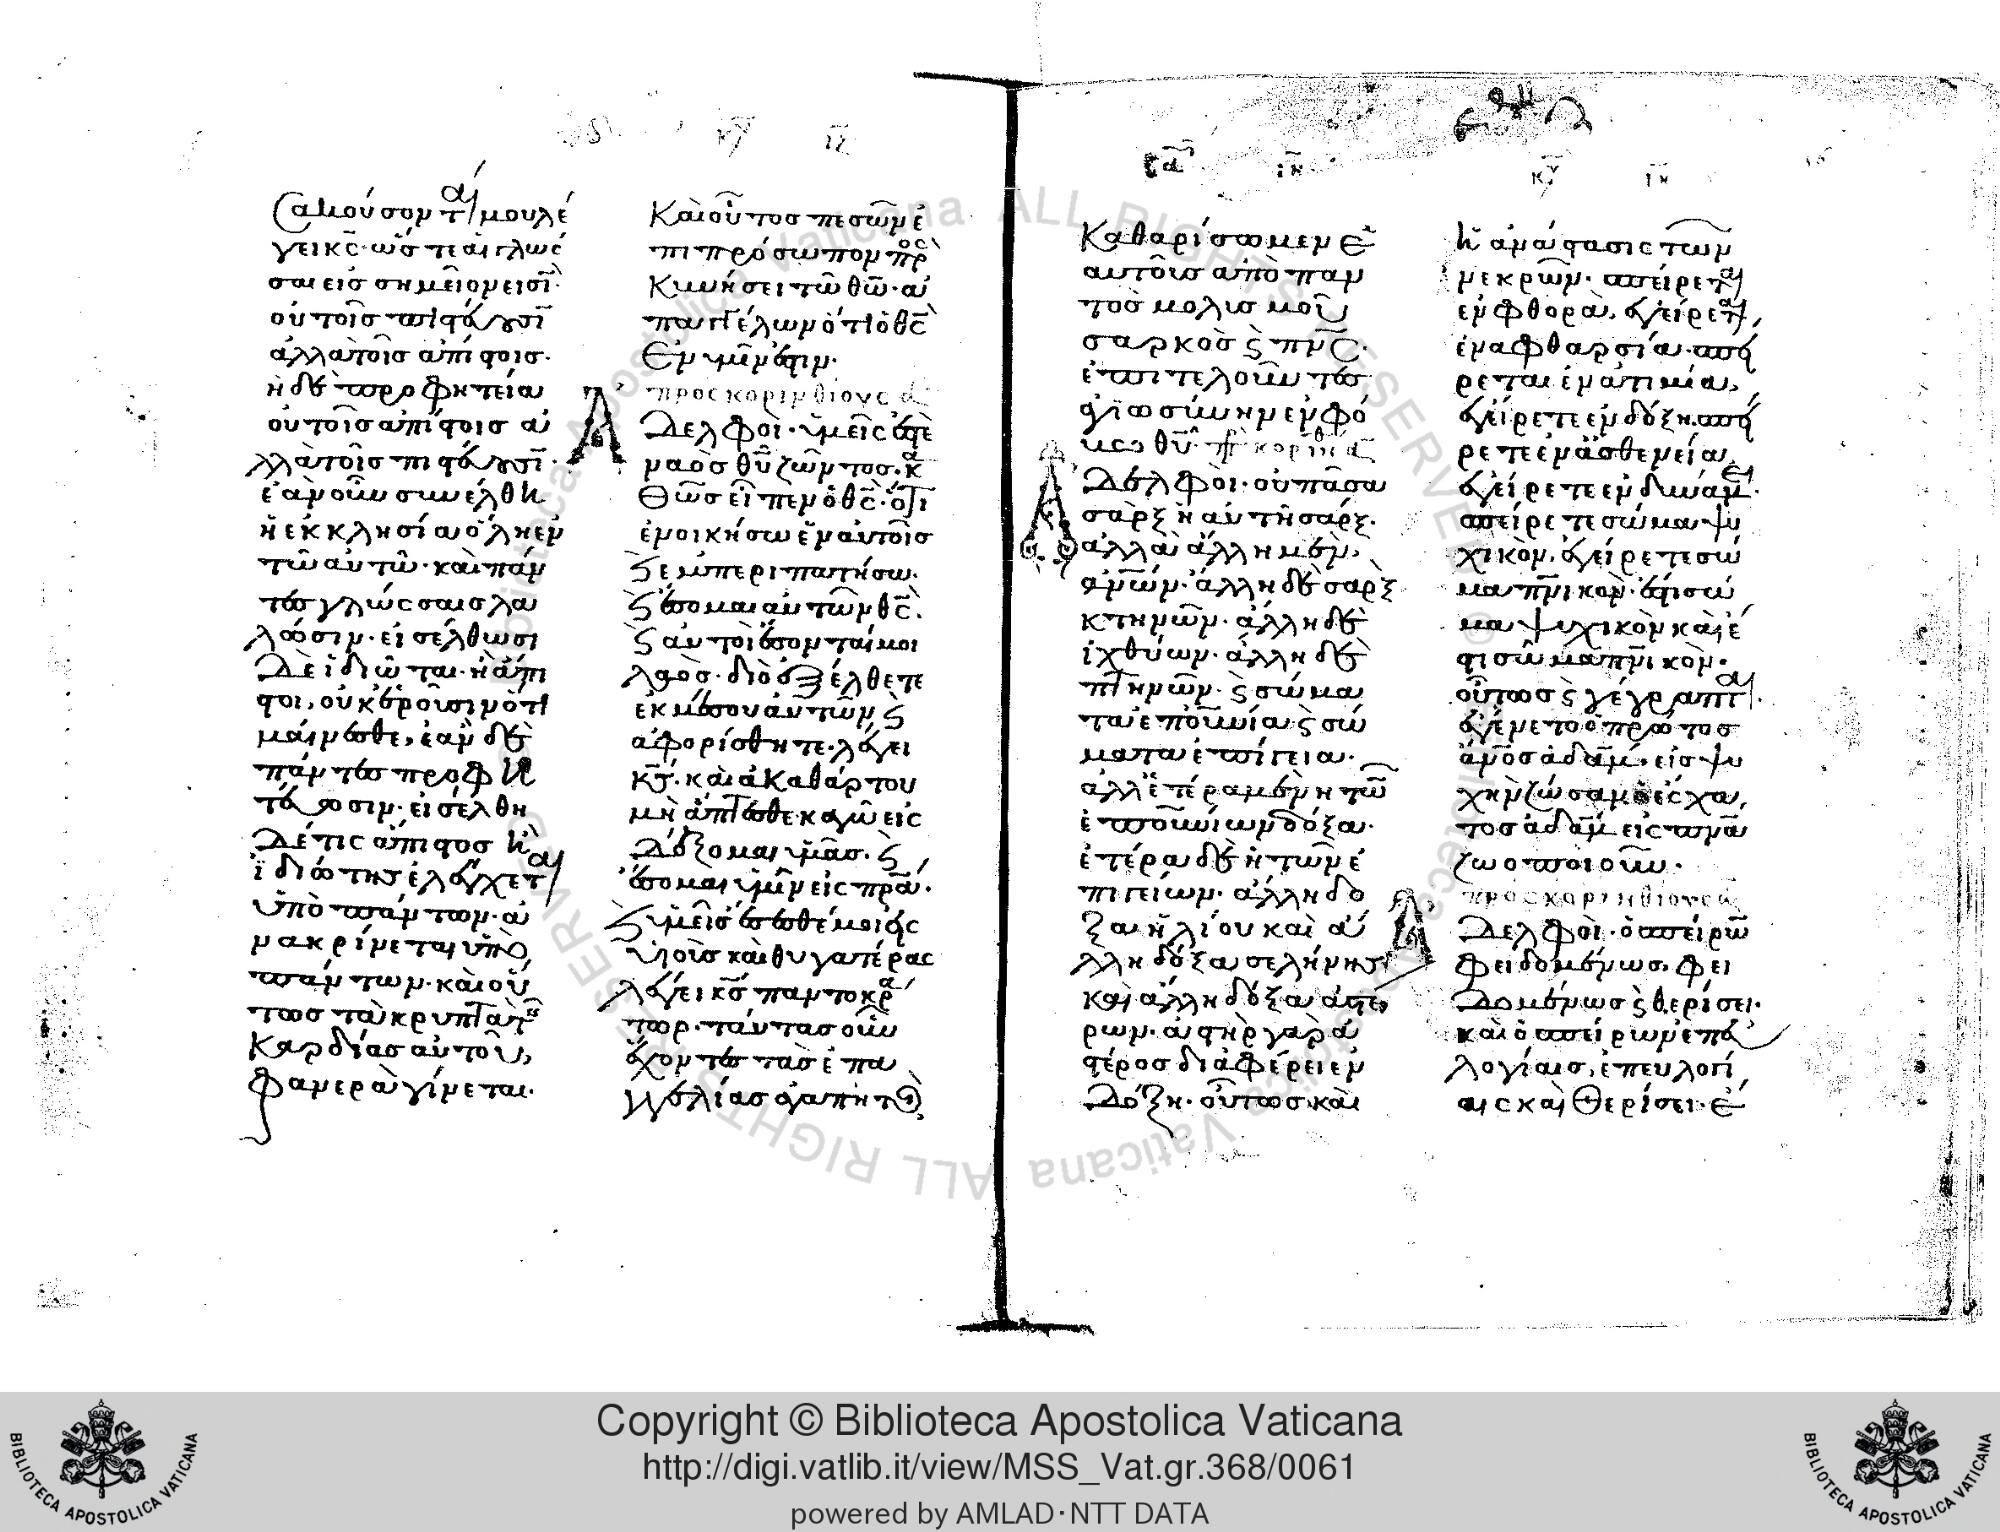 σακούσονταί μου λέ
γει κς· ὥστε αἱ γλωσ
σαι εἰς σημεῖον εἰσὶ·
οὐ τοῖς πιστεύουσῖ
ἀλλὰ τοῖς ἀπίστοις·
ἡ δὲ προφητεία
οὐ τοῖς ἀπίστοις ἀ
λλὰ τοῖς πιστεύουσῖ·
ἐὰν οὖν συνέλθη
ἡ ἐκκλησία ὅλη ἐν
τῶ αὐτῶ· καὶ πάν
τες γλώσσαις λα
λῶσιν· εἰσέλθωσι
δὲ ἰδιῶται· ἢ ἄπι
στοι, οὐκ ἐροῦσιν ὅτι
μαίνεσθε, ἐὰν δὲ
πάντες προφη
τεύωσιν· εἰσέλθη
δέ τις ἄπιστος ἢ
ἰδιώτης ἐλέγχεται
ὑπὸ πάντων· ἀ
νακρίνεται ὑπὸ
πάντων· καὶ οὕ
τως τὰ κρυπτὰ τῆς
καρδίας αὐτοῦ,
φανερὰ γίνεται·
Καὶ οὕτος πεσῶν ἐ
πι πρόσωπον προσ
κυνήσει τῶ θῶ· ἀ
παγγέλων ὅτι ὁ θς
ἐν ὑμῖν ἐστιν·
πρὸς κορινθίους
Ἀδελφοὶ· ὑμεῖς ἐστὲ
ναὸς θῦ ζῶντος· κα
θῶς εἶπεν ὁ θς· ὅτι
ἐνοικήσω ἐν αὐτοῖς
ϗ ἐμπεριπατήσω·
ϗ ἔσομαι αὐτῶν θς·
ϗ αὐτοὶ ἔσονταί μοι
λαὸς· διὸ ἐξέλθετε
ἐκ μέσου αὐτῶν ϗ
ἀφορίσθητε· λέγει
κς· καὶ ἀκαθάρτου
μὴ ἅπτεσθε· καγῶ εἰς
δέξομαι ὑμᾶς· ϗ
ἔσομαι ὑμῖν εἰς πρα·
ϗ ὑμεῖς ἔσεσθέ μοι εἰς
υἱοὺς καὶ θυγατέρας
λέγει κς παντοκρά
τωρ· ταύτας οὖν
ἔχοντες τὰς ἐπα
γγελίας ἀγαπητοὶ
Καθαρίσωμεν ἑ
αυτοῖς ἀπὸ παν
τὸς μολισμοῦ
σαρκὸς ϗ πνς·
ἐπιτελοῦντες
ἁγιωσύνην ἐν φό
βω θῦ· πρ κορινθ
Ἀδελφοὶ· οὐ πᾶσα
σὰρξ ἡ αὐτὴ σάρξ·
ἀλλὰ ἄλλη μὲν,
ανῶν· ἄλλη δὲ σὰρξ
κτηνῶν· ἄλλη δὲ
ἰχθύων· ἄλλη δὲ
πτηνῶν· ϗ σώμα
τα ἐπουνία· ϗ σώ
ματα ἐπίγεια·
ἀλλ' ἑτέρα μὲν ἡ τῶν
ἐπουνίων δόξα·
ἑτέρα δὲ ἡ τῶν ἐ
πιγείων· ἄλλη δό
ξα ἡλίου καὶ ἄ
λλη δόξα σελήνης
καὶ ἄλλη δόξα ἀστέ
ρων· ἀστὴρ γὰρ ἀ
στέρος διαφέρει ἐν
δόξη· οὕτως καὶ
ἡ ἀνάστασις τῶν
νεκρῶν· σπείρεται
ἐν φθορὰ, ἐγείρεται
ἐν ἀφθαρσία· σπεί
ρεται ἐν ἀτιμία,
ἐγείρετε ἐν δόξη· σπεί
ρετε ἐν ἀσθενεία,
ἐγείρετε ἐν δυνάμει·
σπείρετε σώμα ψυ
χικὸν, ἐγείρετε σώ
μα πνικὸν· ἔστι σώ
μα ψυχικὸν καὶ ἔ
στι σῶμα πνικὸν·
οὕτως ϗ γέγραπται·
ἐγένετο ὁ πρῶτος
ἀνος ἀδὰμ· εἰς ψυ
χὴν ζώσαν ὁ ἔσχα
τος ἀδὰμ εἰς πνα
ζωοποιοῦν·
προς κορινθιους
Ἀδελφοὶ· ὁ σπείρων
φειδομένως, φει
δομένως ϗ θερίσει·
καὶ ὁ σπείρων ἐπεύ
λογίαις, ἐπευλογί
αις καὶ θερίσει· ἕ
Copyright © Biblioteca Apostolica Vaticana
http://digi.vatlib.it/view/MSS_Vat.gr.368/0061
powered by AMLAD·NTT DATA
BIBLIOTECA APOSTOLICA VATICANA
BIBLIOTECA APOSTOLICA VATICANA